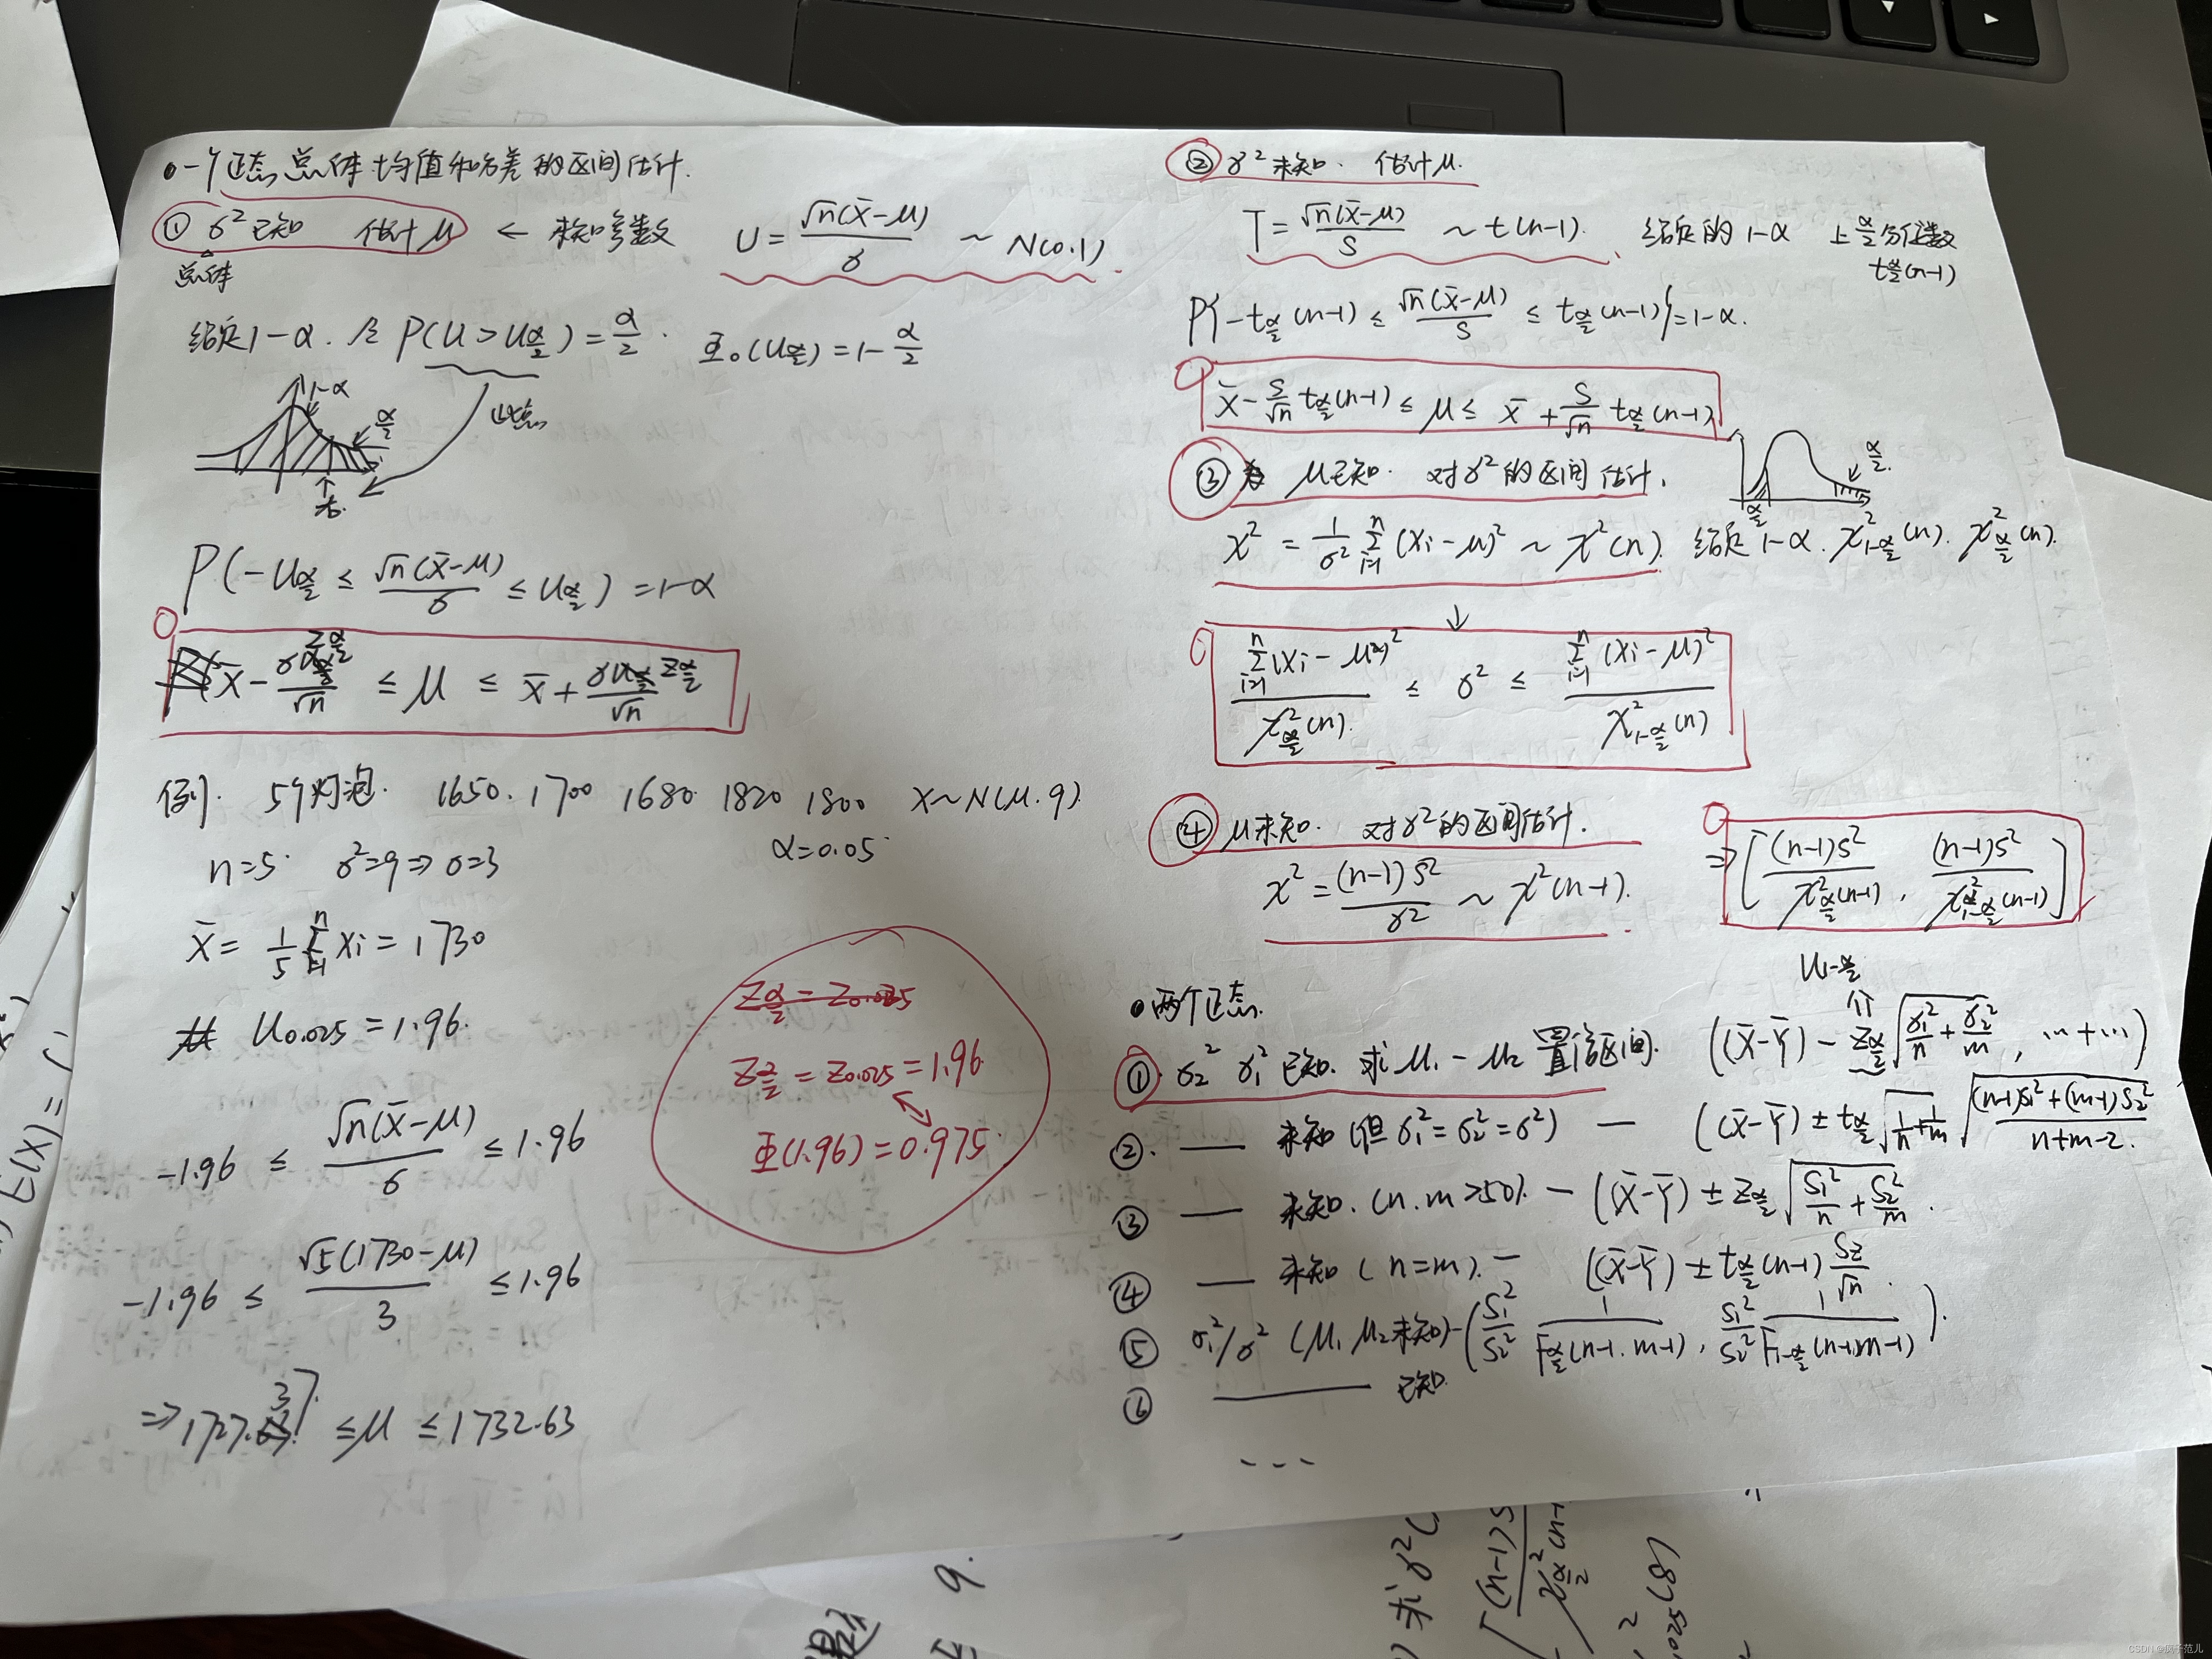 一个正态总体均值和方差的区间估计.
① σ²已知 估计μ ← 未知参数 U = √n(X̄-μ)/σ ~ N(0.1)
总体
给定1-α. 令 P(U>U_{α/2}) = α/2. Φ₀(U_{α/2}) = 1-α/2
1-α
α/2
P(-U_{α/2} ≤ √n(X̄-μ)/σ ≤ U_{α/2}) = 1-α
X̄ - σ Z_{α/2}/√n ≤ μ ≤ X̄ + σ Z_{α/2}/√n
例. 5个灯泡. 1650. 1700 1680 1820 1800 X~N(μ.9)
n=5 σ²=9 ⇒ σ=3 α=0.05
X̄ = 1/5 Σ_{i=1}^{n} Xi = 1730
U_{0.025} = 1.96.
Z_{α/2} = Z_{0.025} = 1.96.
Φ(1.96) = 0.975.
-1.96 ≤ √n(X̄-μ)/σ ≤ 1.96
-1.96 ≤ √5(1730-μ)/3 ≤ 1.96
⇒ 1727.37 ≤ μ ≤ 1732.63
② σ²未知. 估计μ.
T = √n(X̄-μ)/S ~ t(n-1). 给定的 1-α 上α/2分位数
t_{α/2}(n-1)
P{-t_{α/2}(n-1) ≤ √n(X̄-μ)/S ≤ t_{α/2}(n-1)} = 1-α.
X̄ - S/√n t_{α/2}(n-1) ≤ μ ≤ X̄ + S/√n t_{α/2}(n-1)
③ μ已知. 对σ²的区间估计.
α/2
α/2
χ² = 1/σ² Σ_{i=1}^{n} (Xi-μ)² ~ χ²(n). 给定 1-α. χ²_{1-α/2}(n). χ²_{α/2}(n).
↓
Σ_{i=1}^{n}(Xi-μ)²/χ²_{α/2}(n) ≤ σ² ≤ Σ_{i=1}^{n}(Xi-μ)²/χ²_{1-α/2}(n)
④ μ未知. 对σ²的区间估计.
χ² = (n-1)S²/σ² ~ χ²(n-1). ⇒ [(n-1)S²/χ²_{α/2}(n-1), (n-1)S²/χ²_{1-α/2}(n-1)]
两个正态. U_{1-α/2}
① σ₂² σ₁² 已知. 求μ₁-μ₂ 置信区间. ((X̄-Ȳ) - Z_{α/2}√(σ₁²/n + σ₂²/m), … + …)
②. — 未知 (但 σ₁²=σ₂²=σ²) — ((X̄-Ȳ) ± t_{α/2}√(1/n+1/m) √((n-1)S₁²+(m-1)S₂²/n+m-2.
③ — 未知. (n.m>50). — (X̄-Ȳ) ± Z_{α/2}√(S₁²/n + S₂²/m).
④ — 未知 (n=m). — ((X̄-Ȳ) ± t_{α/2}(n-1) Sz/√n.
⑤ σ₁²/σ² (μ₁ μ₂未知) - (S₁²/S₂² 1/F_{α/2}(n-1.m-1), S₁²/S₂² 1/F_{1-α/2}(n-1,m-1)).
⑥ — 已知
- - -
E(X)=
9.
求σ²
(n-1)S
(8)
CSDN @疯子范儿